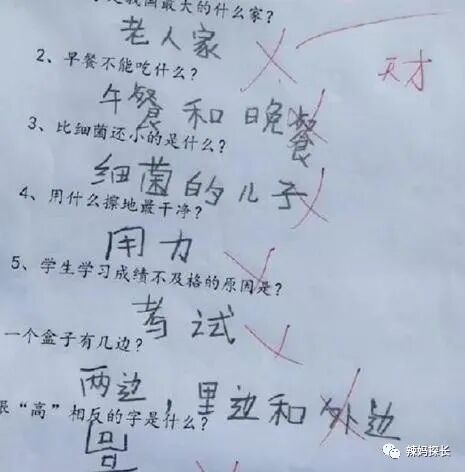 是我国最大的什么家？
老人家
天才
2、早餐不能吃什么？
午餐和晚餐
3、比细菌还小的是什么？
细菌的儿子
4、用什么擦地最干净？
用力
5、学生学习成绩不及格的原因是？
考试
一个盒子有几边？
两边，里边和外边
“高”相反的字是什么？
辣妈探长